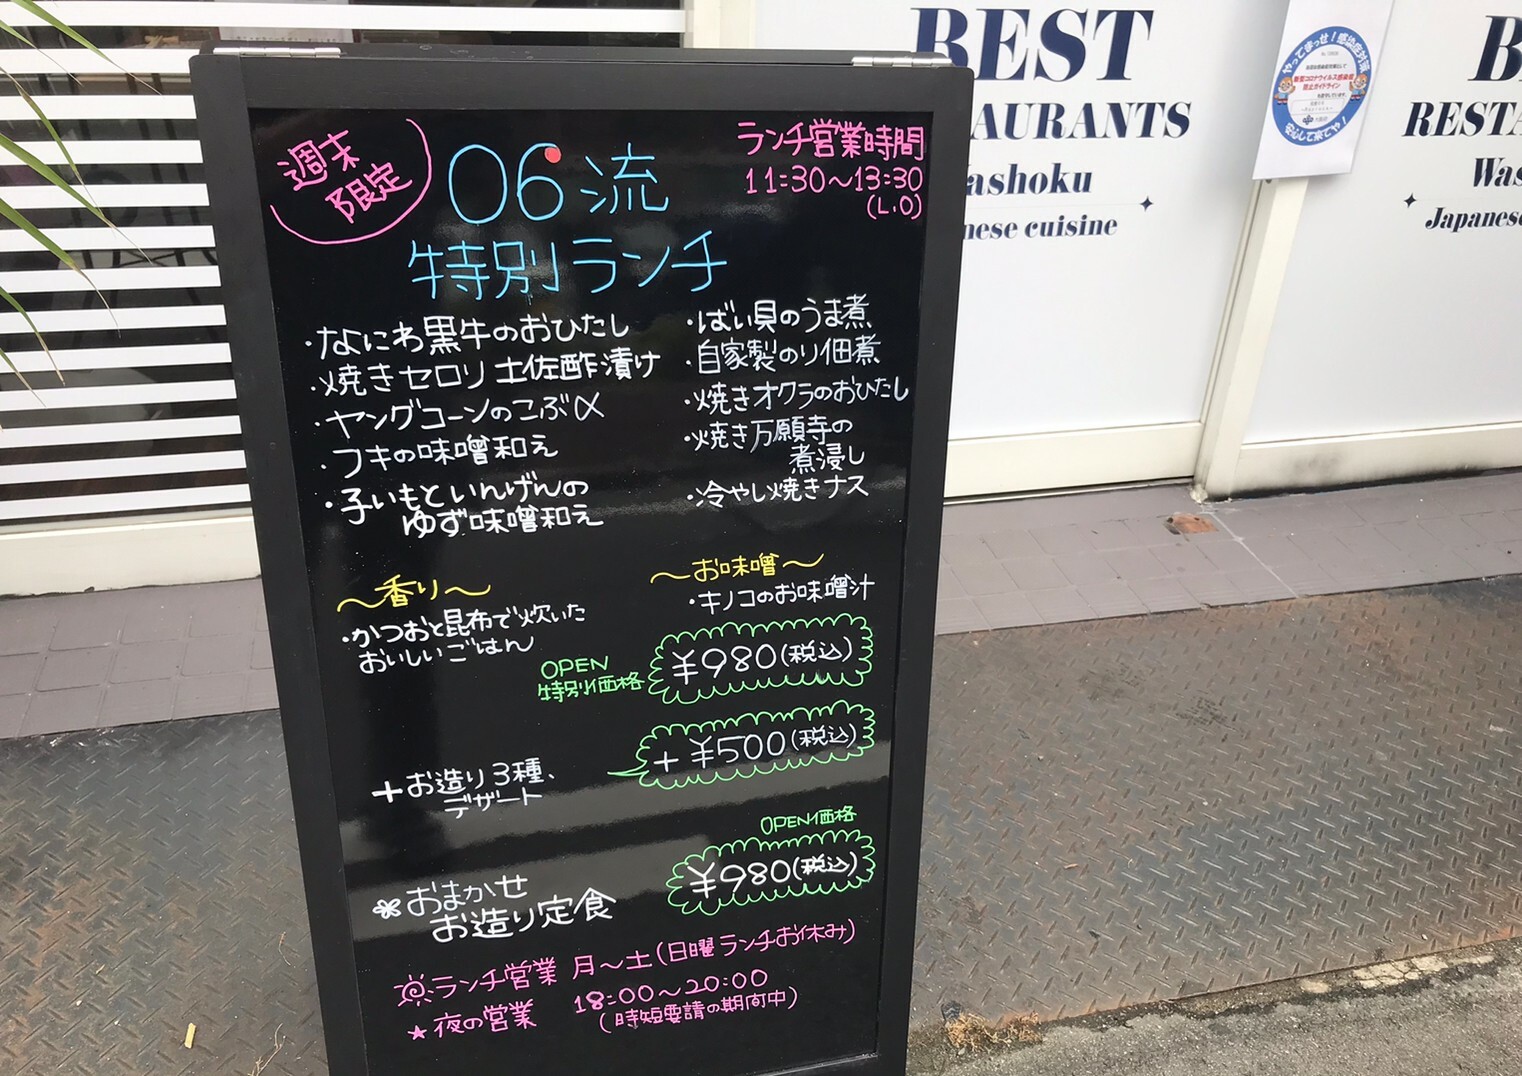 週末
限定
06流
特別ランチ
ランチ営業時間
11:30～13:30
(L.O)
・なにわ黒牛のおひたし
・焼きセロリ土佐酢漬け
・ヤングコーンのこぶ〆
・フキの味噌和え
・子いもといんげんの
ゆず味噌和え
・ばい貝のうま煮
・自家製のり佃煮
・焼きオクラのおひたし
・焼き万願寺の
煮浸し
・冷やし焼きナス
～香り～
・かつおと昆布で炊いた
おいしいごはん
～お味噌～
・キノコのお味噌汁
OPEN
特別価格
¥980(税込)
+お造り3種、
デザート
+¥500(税込)
OPEN価格
¥980(税込)
おまかせ
お造り定食
ランチ営業 月～土(日曜ランチお休み)
★夜の営業 18:00～20:00
(時短要請の期間中)
BEST
AURANTS
ashoku
nese cuisine
やってまっせ！感染症対策
新型コロナウイルス感染症
防止ガイドライン
安心して来てや！
B
RESTA
Was
Japanese